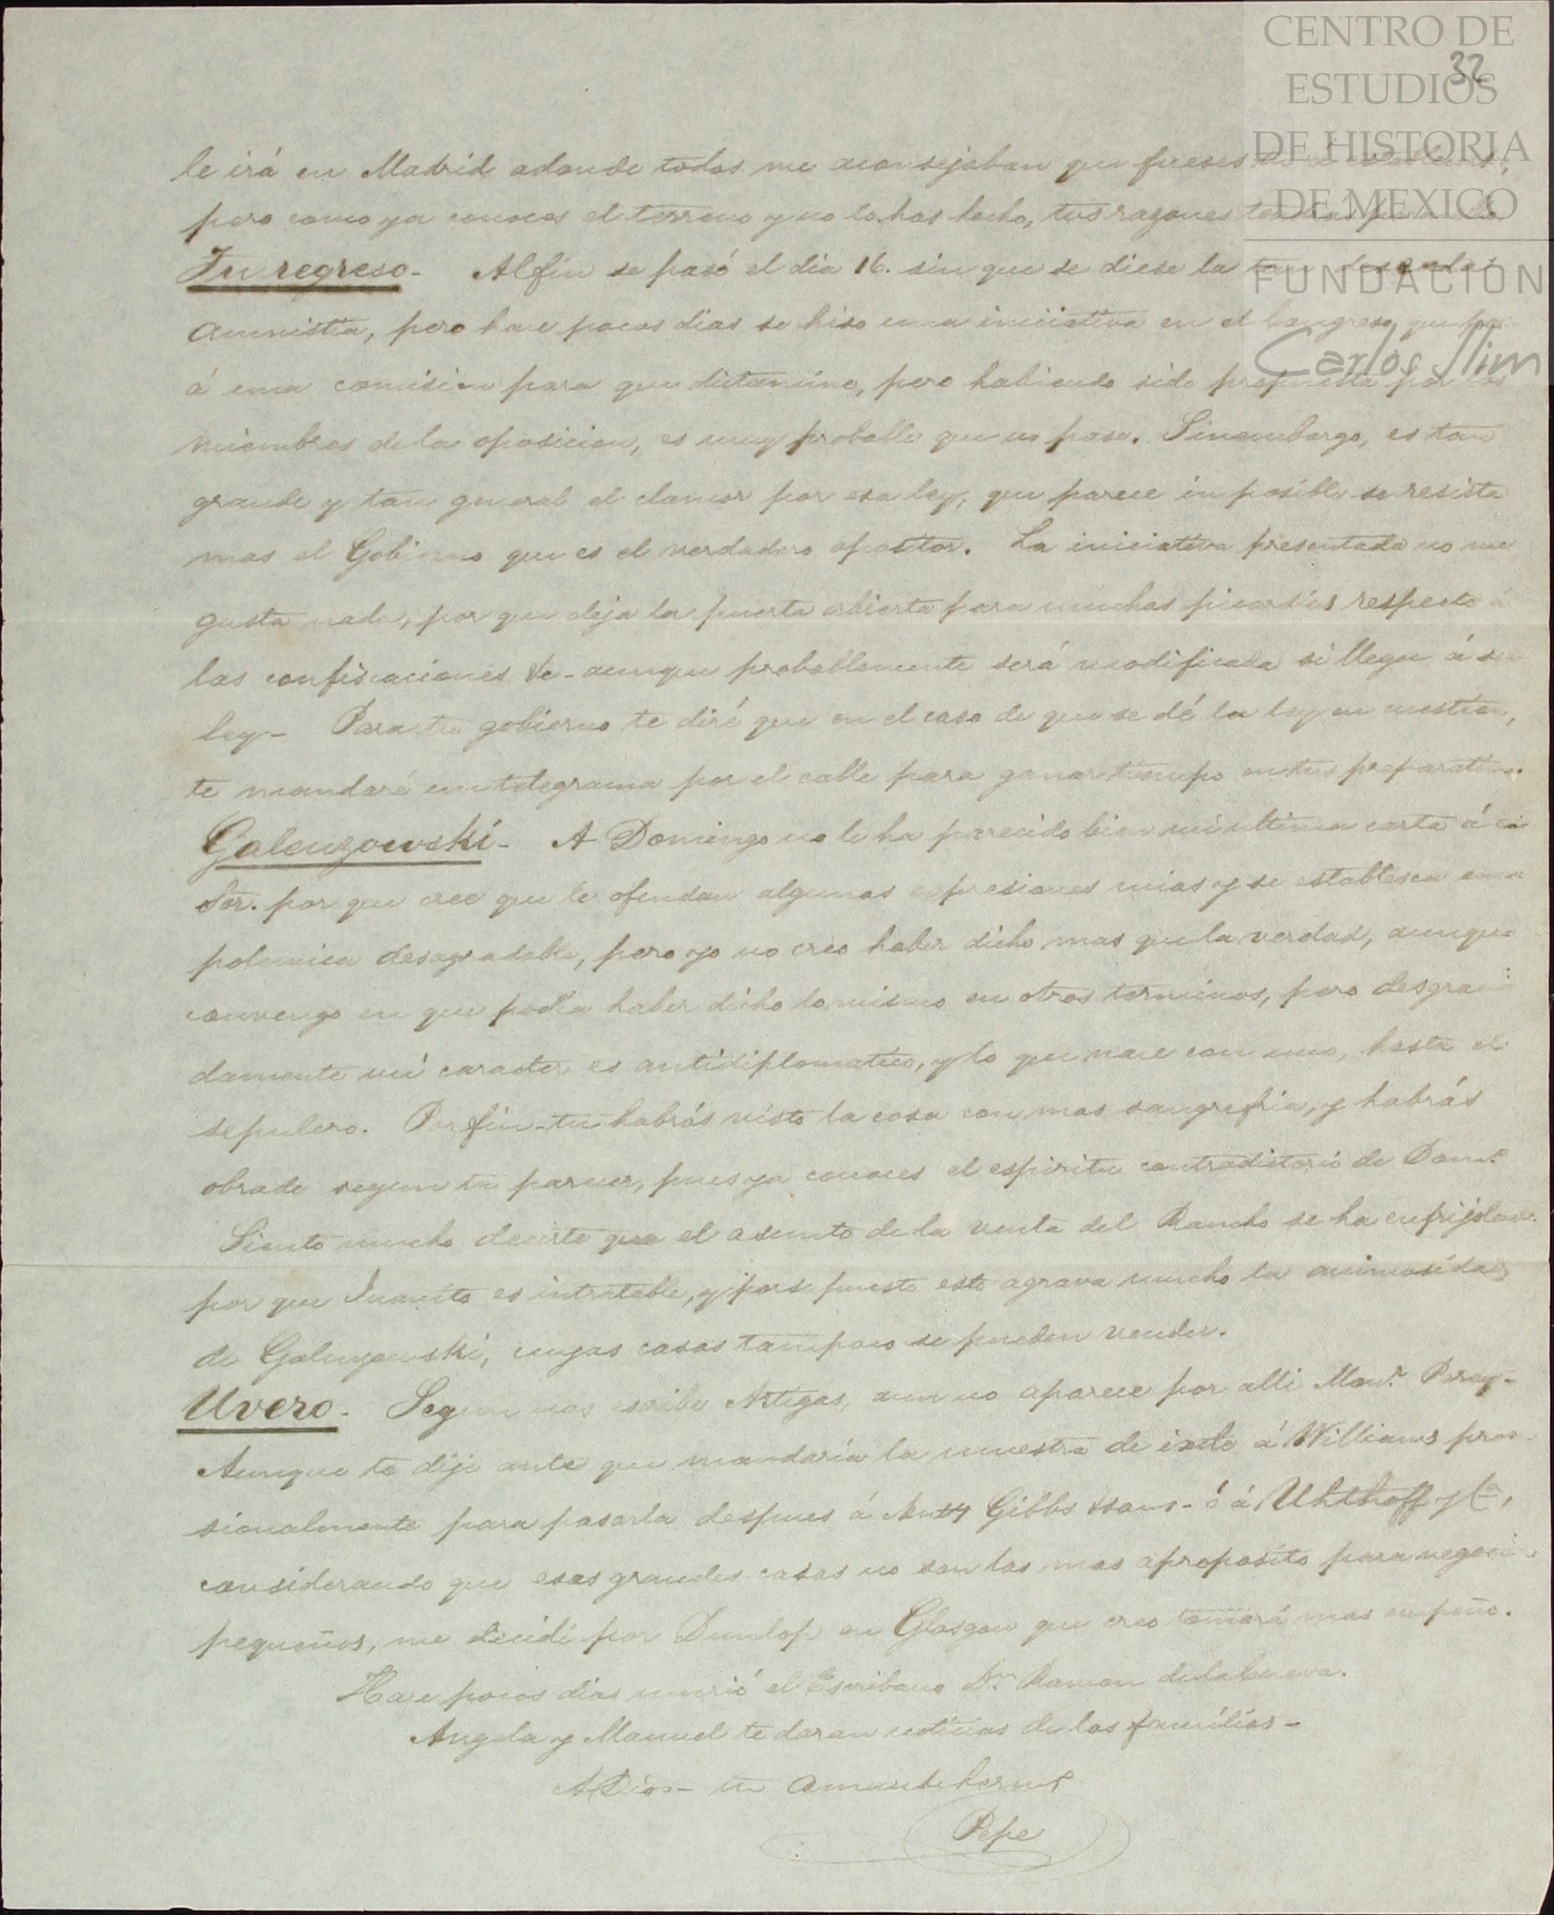 CENTRO DE
ESTUDIOS
DE HISTORIA
DE MEXICO
FUNDACIÓN
Carlos Slim
32
le irá en Madrid adonde todos me aconsejaban que fueses
pero como ya conoces el terreno y no lo has hecho, tus razones tendras para ello
Tu regreso - Al fin se pasó el dia 16. sin que se diese la tan deseada
amnistia, pero hace pocos dias se hiso una iniciativa en el Congreso, que
á una comision para que dictamine, pero habiendo sido propuesta por los
miembros de la oposicion, es muy probable que no pase. Sinembargo, es tan
grande y tan general el clamor por esa ley, que parece imposible se resista
mas el Gobierno que es el verdadero opositor. La iniciativa presentada no me
gusta nada, por que deja la puerta abierta para muchas picardias respecto á
las confiscaciones &c - aunque probablemente será modificada si llega á ser
ley - Para tu gobierno te diré que en el caso de que se dé la ley en cuestion,
te mandaré un telegrama por el cable para ganar tiempo en tus preparativos
Galenzowski - A Domingo no le ha parecido bien mi ultima carta á ese
Sor. por que cree que le ofendan algunas espresiones mias y se establesca una
polemica desagradable, pero yo no creo haber dicho mas que la verdad, aunque
convengo en que podia haber dicho lo mismo en otros terminos, pero desgra
damente mi caracter es antidiplomatico, y lo que nace con uno, hasta el
sepulcro. Por fin tu habrás visto la cosa con mas sangre fria, y habrás
obrado segun tu parecer, pues ya conoces el espiritu contradictorio de Domo.
Siento mucho decirte que el asunto de la venta del Rancho se ha enfrijolado
por que Juanito es intratable, y por supuesto esto agrava mucho la animosidad
de Galenzowski, cuyas casas tampoco se pueden vender.
Uvero - Segun nos escribe Artigas, aun no aparece por alli Monr.
Aunque te dije antes que mandaria la muestra de ixtle á Williams provi
sionalmente para pasarla despues á Anty Gibbs & sons - ó á Uhthoff y Ca,
considerando que esas grandes casas no son las mas aproposito para negocios
pequeños, me decidí por Dunlop en Glasgow que creo tomará mas empeño.
Hace pocos dias murió el Escribano Dn. Ramon de la Cueva.
Angela y Manuel te daran noticias de las familias -
A Dios - tu amante hermo.
Pepe